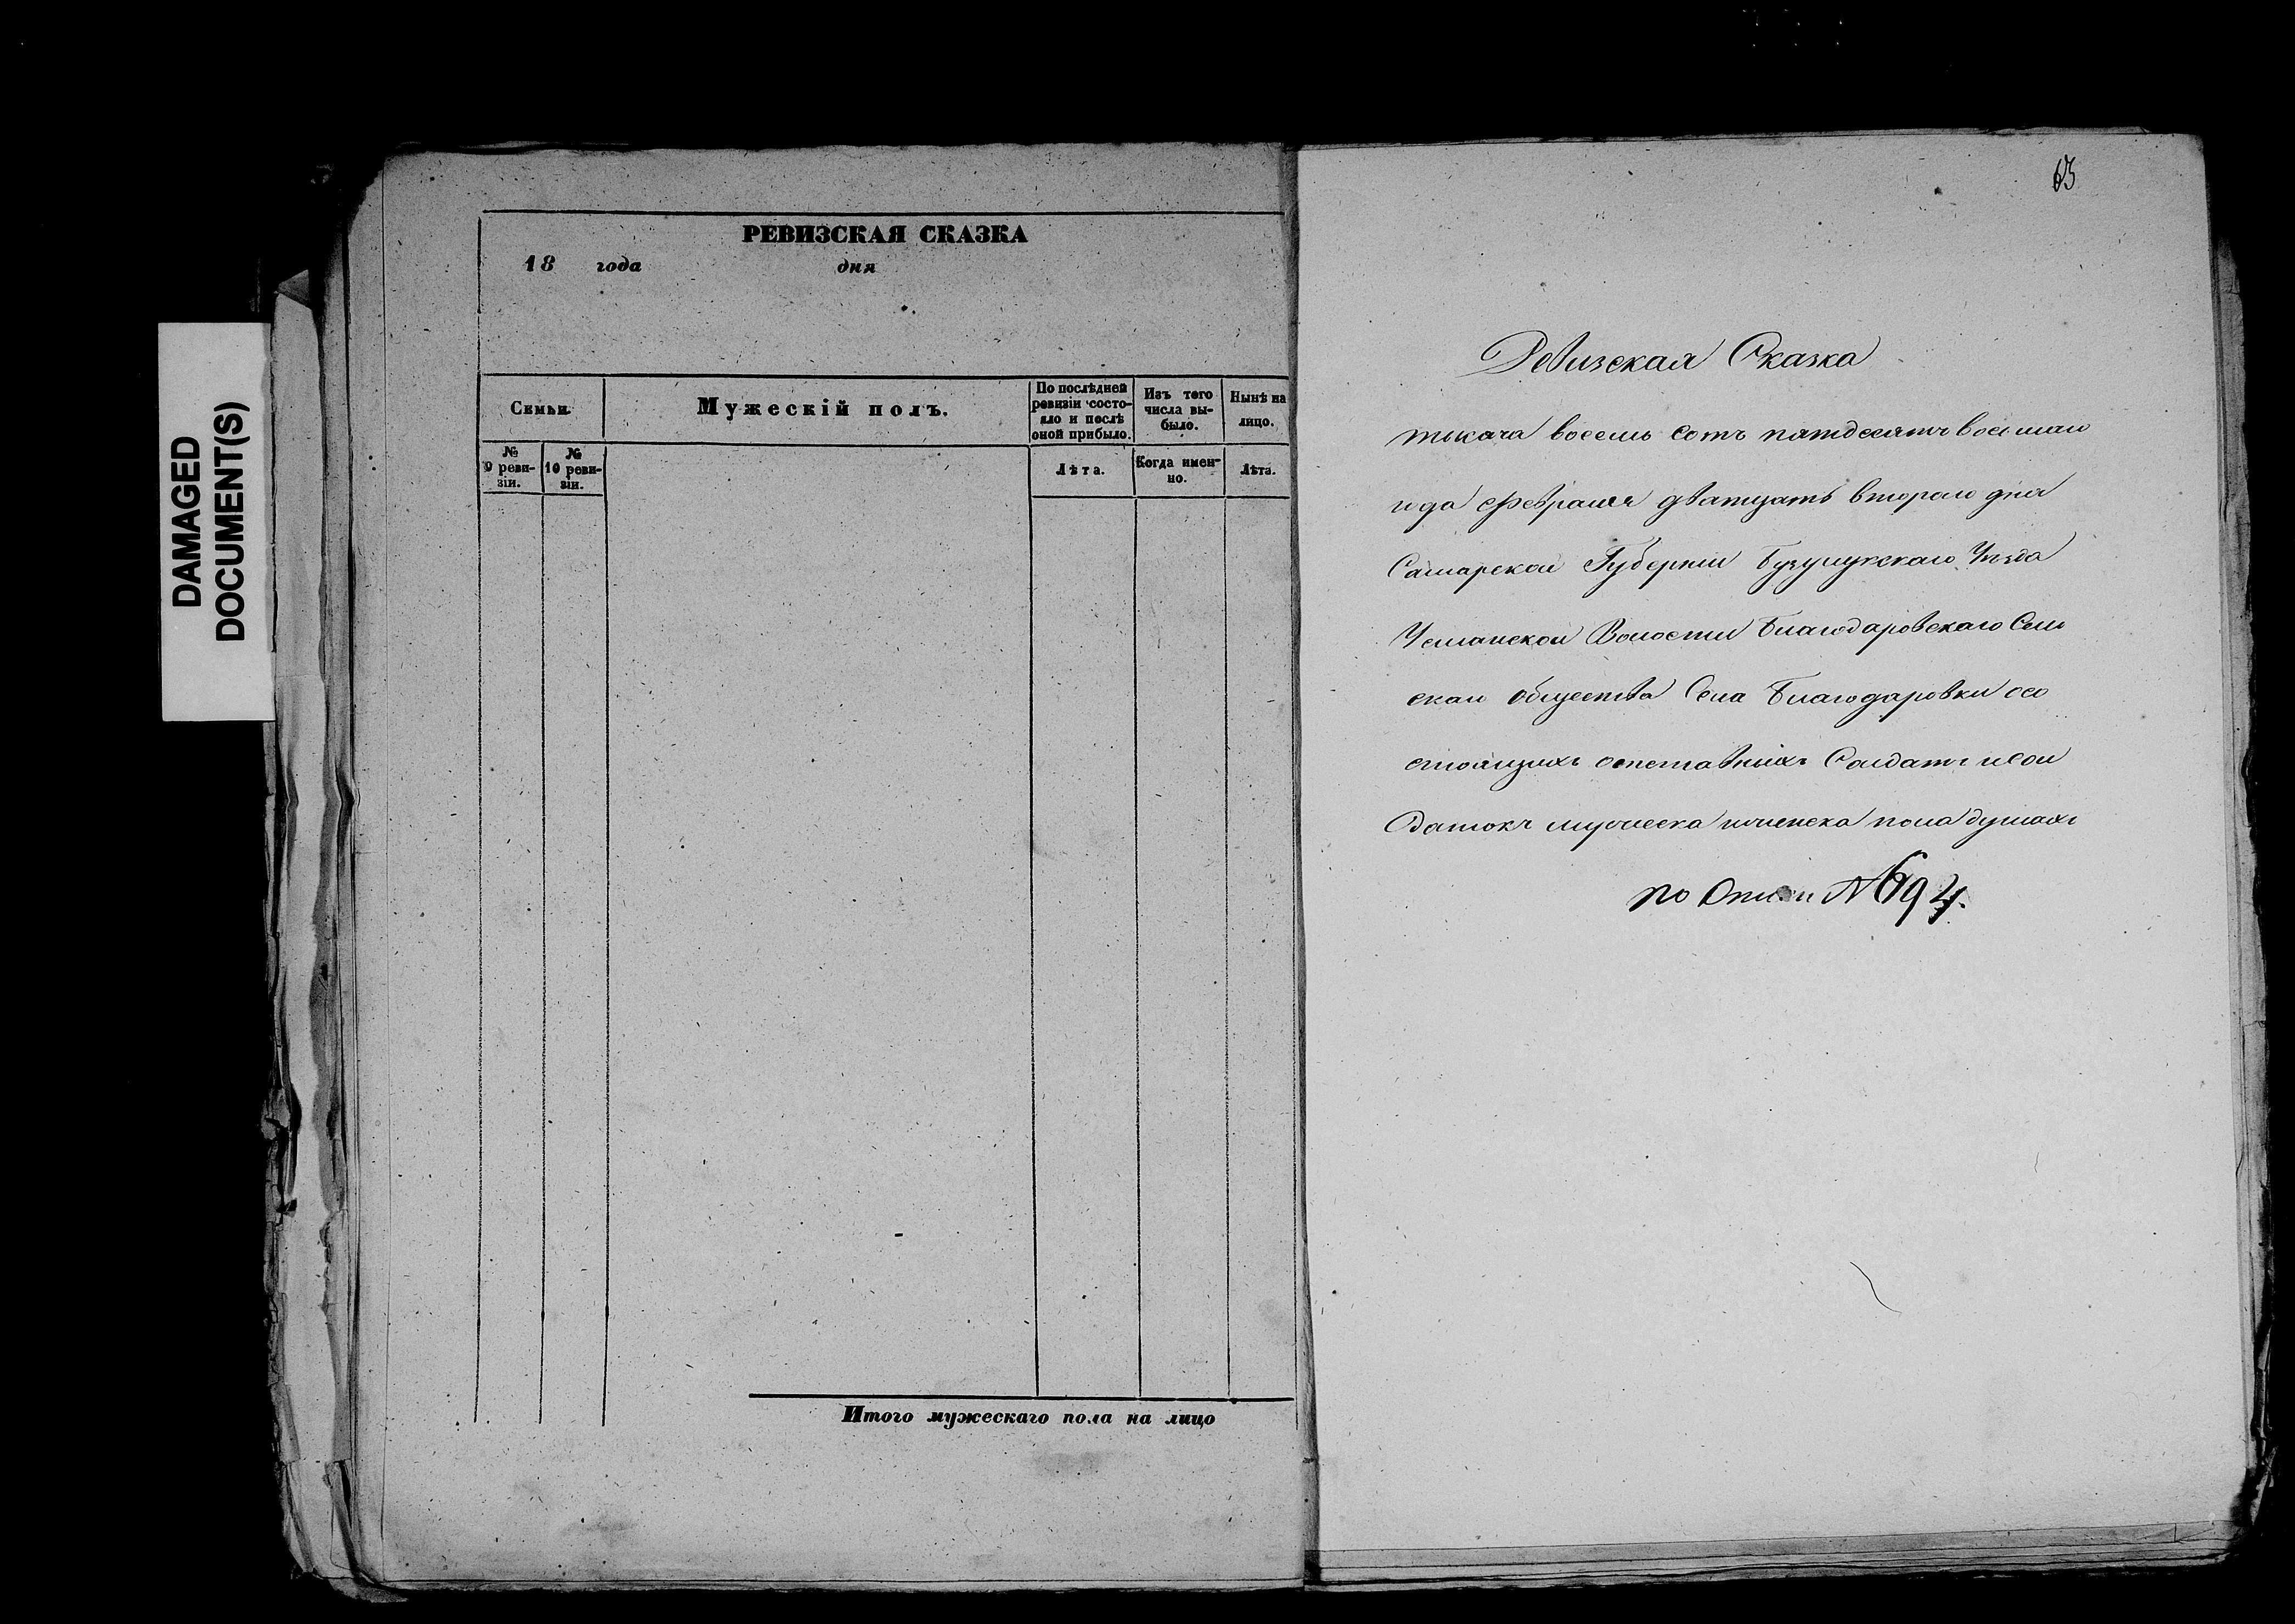 DAMAGED
DOCUMENT(S)
РЕВИЗСКАЯ СКАЗКА
18 года дня
Семьи.
Мужескій полъ.
По послѣдней
ревизіи состо-
яло и послѣ
оной прибыло.
Изъ того
числа вы-
было.
Нынѣ на
лицо.
№
9 реви-
зіи.
№
10 реви-
зіи.
Лѣта.
Когда имен-
но.
Лѣта.
Итого мужескаго пола на лицо
63
Ревизская Сказка
тысяча восемь сотъ пятдесятъ восьмаго
года Февраля дватцать втораго дня
Самарской Губерніи Бузулукскаго Уѣзда
Усманской Волости Благодаровскаго Сель
скаго общества Села Благодаровки осо
стоящихъ Солдатъ исол
датокъ мужеска иженска пола душахъ
по Описи № 694.